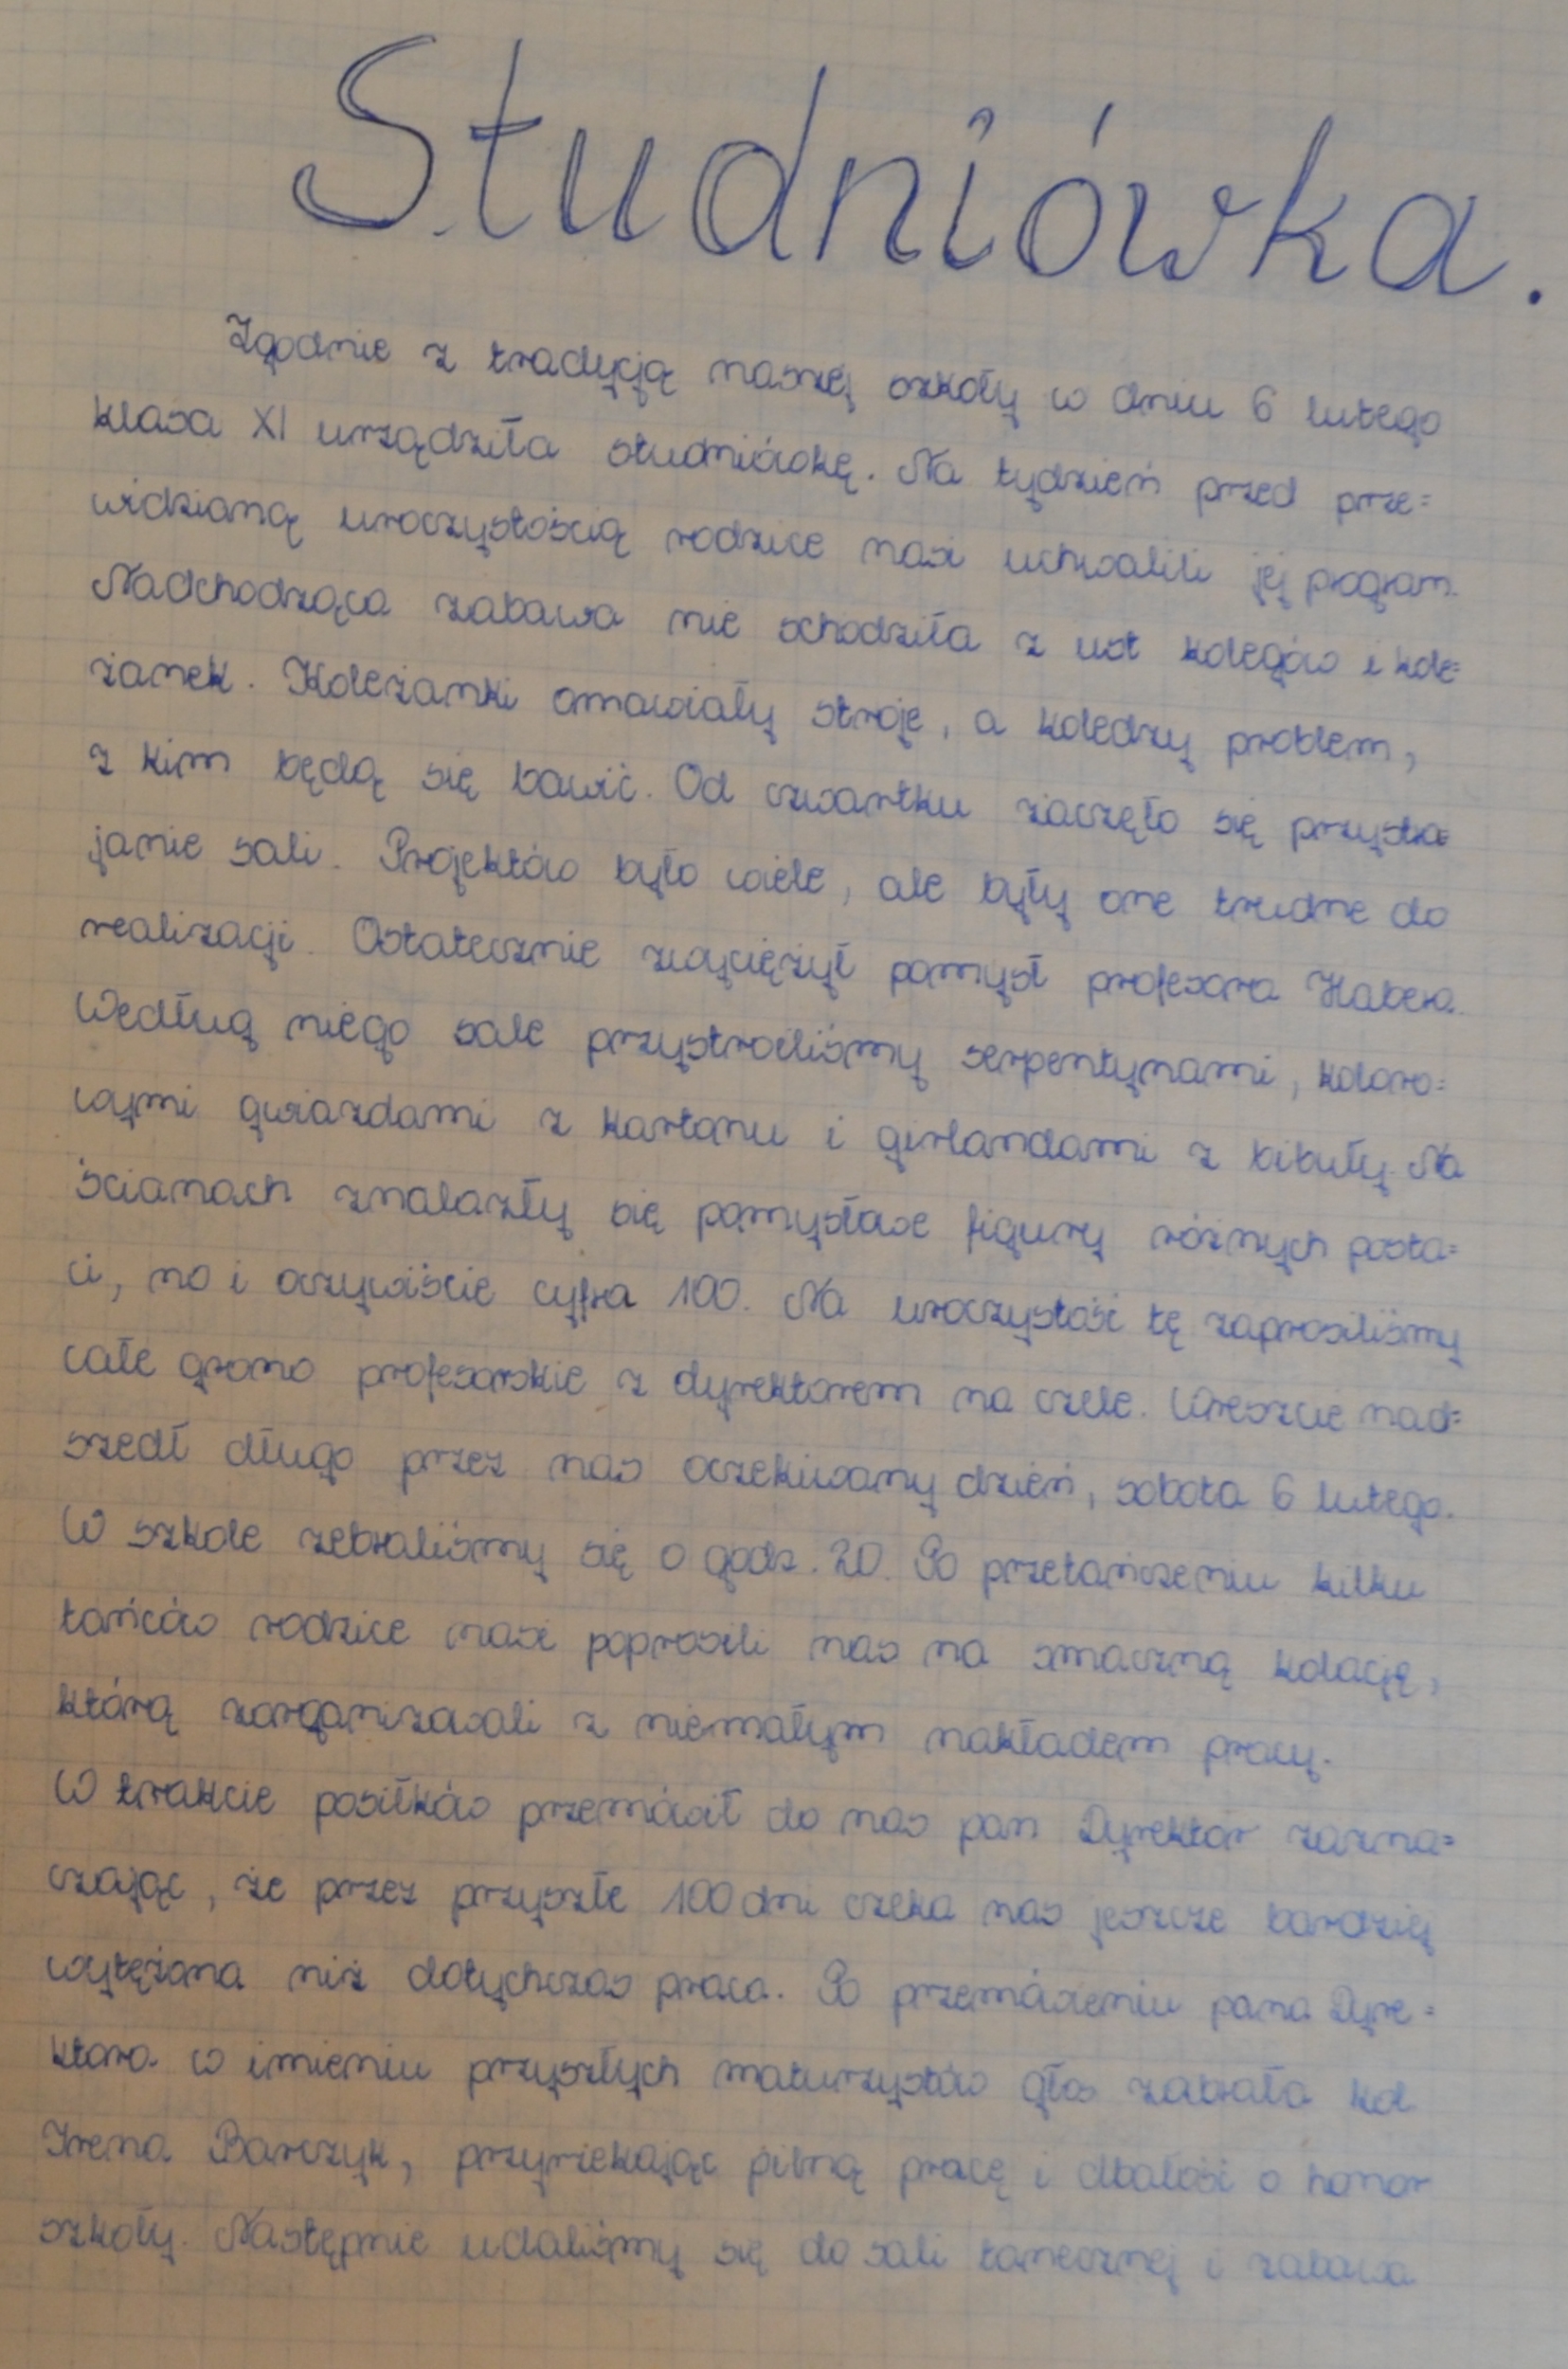 Studniówka.
Zgodnie z tradycją naszej szkoły w dniu 6 lutego
klasa XI urządziła studniówkę. Na tydzień przed prze=
widzianą uroczystością rodzice nasi uchwalili jej program.
Nadchodząca zabawa nie schodziła z ust kolegów i kole=
żanek. Koleżanki omawiały stroje, a koledzy problem,
z kim będą się bawić. Od czwartku zaczęło się przystra=
janie sali. Projektów było wiele, ale były one trudne do
realizacji. Ostatecznie zwyciężył pomysł profesora Habera.
Według niego sale przystroiliśmy serpentynami, koloro=
wymi gwiazdami z kartonu i girlandami z bibuły. Na
ścianach znalazły się pomysłowe figury różnych posta=
ci, no i oczywiście cyfra 100. Na uroczystość tę zaprosiliśmy
całe grono profesorskie z dyrektorem na czele. Wreszcie nad=
szedł długo przez nas oczekiwany dzień, sobota 6 lutego.
W szkole zebraliśmy się o godz. 20. Po przetańczeniu kilku
tańców rodzice nasi poprosili nas na smaczną kolację,
którą zorganizowali z niemałym nakładem pracy.
W trakcie posiłków przemówił do nas pan Dyrektor zazna=
czając, że przez przyszłe 100 dni czeka nas jeszcze bardziej
wytężona niż dotychczas praca. Po przemówieniu pana Dyre=
ktora w imieniu przyszłych maturzystów głos zabrała kol.
Irena Barczyk, przyrzekając pilną pracę i dbałość o honor
szkoły. Następnie udaliśmy się do sali tanecznej i zabawa